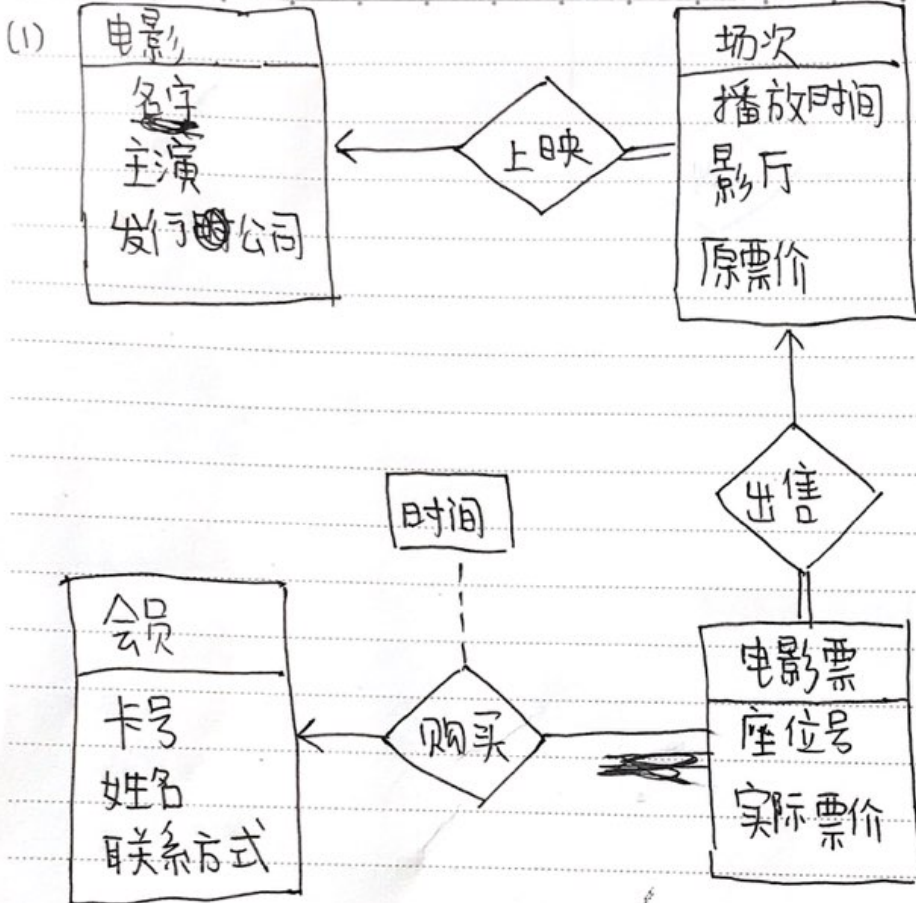 (1)
电影
名字
主演
发行公司
上映
场次
播放时间
影厅
原票价
出售
时间
会员
卡号
姓名
联系方式
购买
电影票
座位号
实际票价